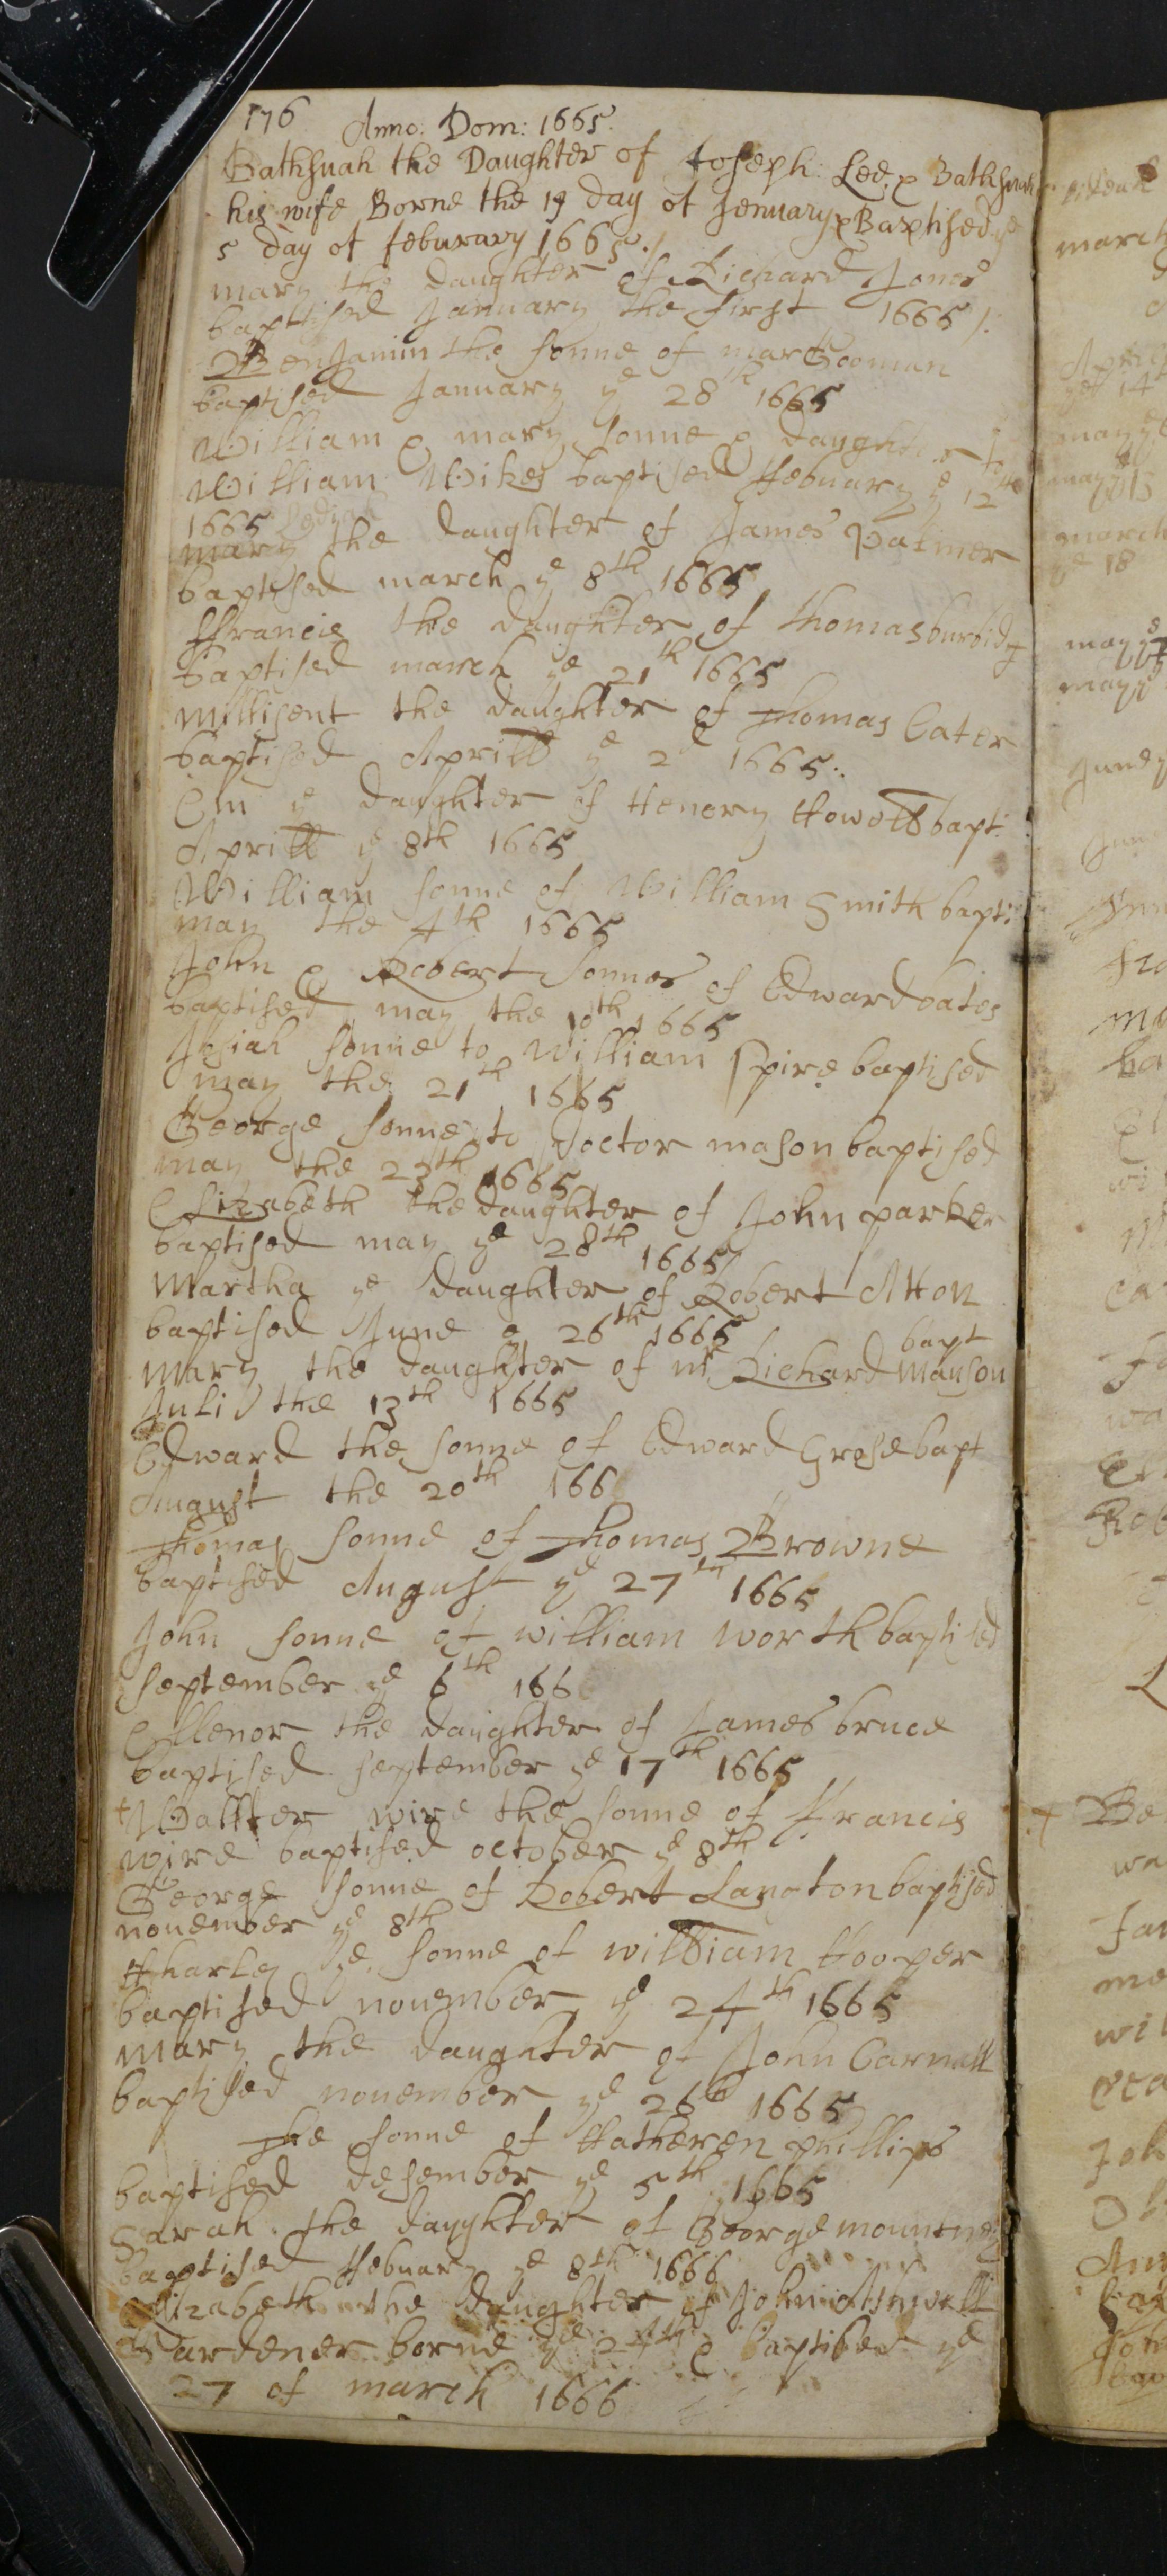 176 Anno: Dom: 1665
Bathsuah the Daughter of Joseph: Lee & Bathsuah
his wife Borne the 19 day of Jenuary & Baptised ye
5 day of feburary 1665./
mary the daughter of Richard Jones
baptised January the first 1665/.
Benjamin the sonne of mar Gooman
baptised January ye 28th 1665
William & mary sonne & daughter to
William Wikes baptised ffebuary ye 12th
1665
mary the daughter of James Palmer
baptised march ye 8th 1665
ffrancis the daughter of thomas burbidg
baptised march ye 21th 1665
Millisent the daughter of Thomas Cater
baptised Aprill ye 2d 1665..
Em ye daughter of Henery Howett bapt:
Aprill ye 8th 1665
William sonne of William Smith bapt:
may the 4th 1665
John & Robert sonnes of Edward bates
baptised may the 10th 1665
Josiah sonne to William Spire baptised
may the 21th 1665
George sonne to Doctor mason baptised
may the 23th 1665
Elizabeth the daughter of John parker
baptised may ye 28th 1665/
Martha ye daughter of Robert Atton
baptised June ye 26th 1665
bapt
Mary the daughter of mr Richard Manson
Juli the 13th 1665
Edward the sonne of Edward Grose bapt
August the 20th 166
Thomas sonne of Thomas Browne
baptised August ye 27th 1665
John sonne of william worth baptised
September ye 6th 166
Ellenor the daughter of James bruce
baptised september ye 17th 1665
Wallter wire the sonne of ffrancis
wire baptised october ye 8th
George sonne of Robert Langton baptised
nouember ye 8th
Charles ye sonne of william Hooper
baptised nouember ye 24th 1665
Mary the daughter of John Carnall
baptised nouember ye 26th 1665
The sonne of Katheren phillips
baptised desember ye 5th 1665
Sarah the daughter of George mountney
baptised ffebuary ye 8th 1666
Elizabeth the daughter of John
Gardener borne ye 24th & baptised ye
27 of march 1666
march
may ye
march
ye 18